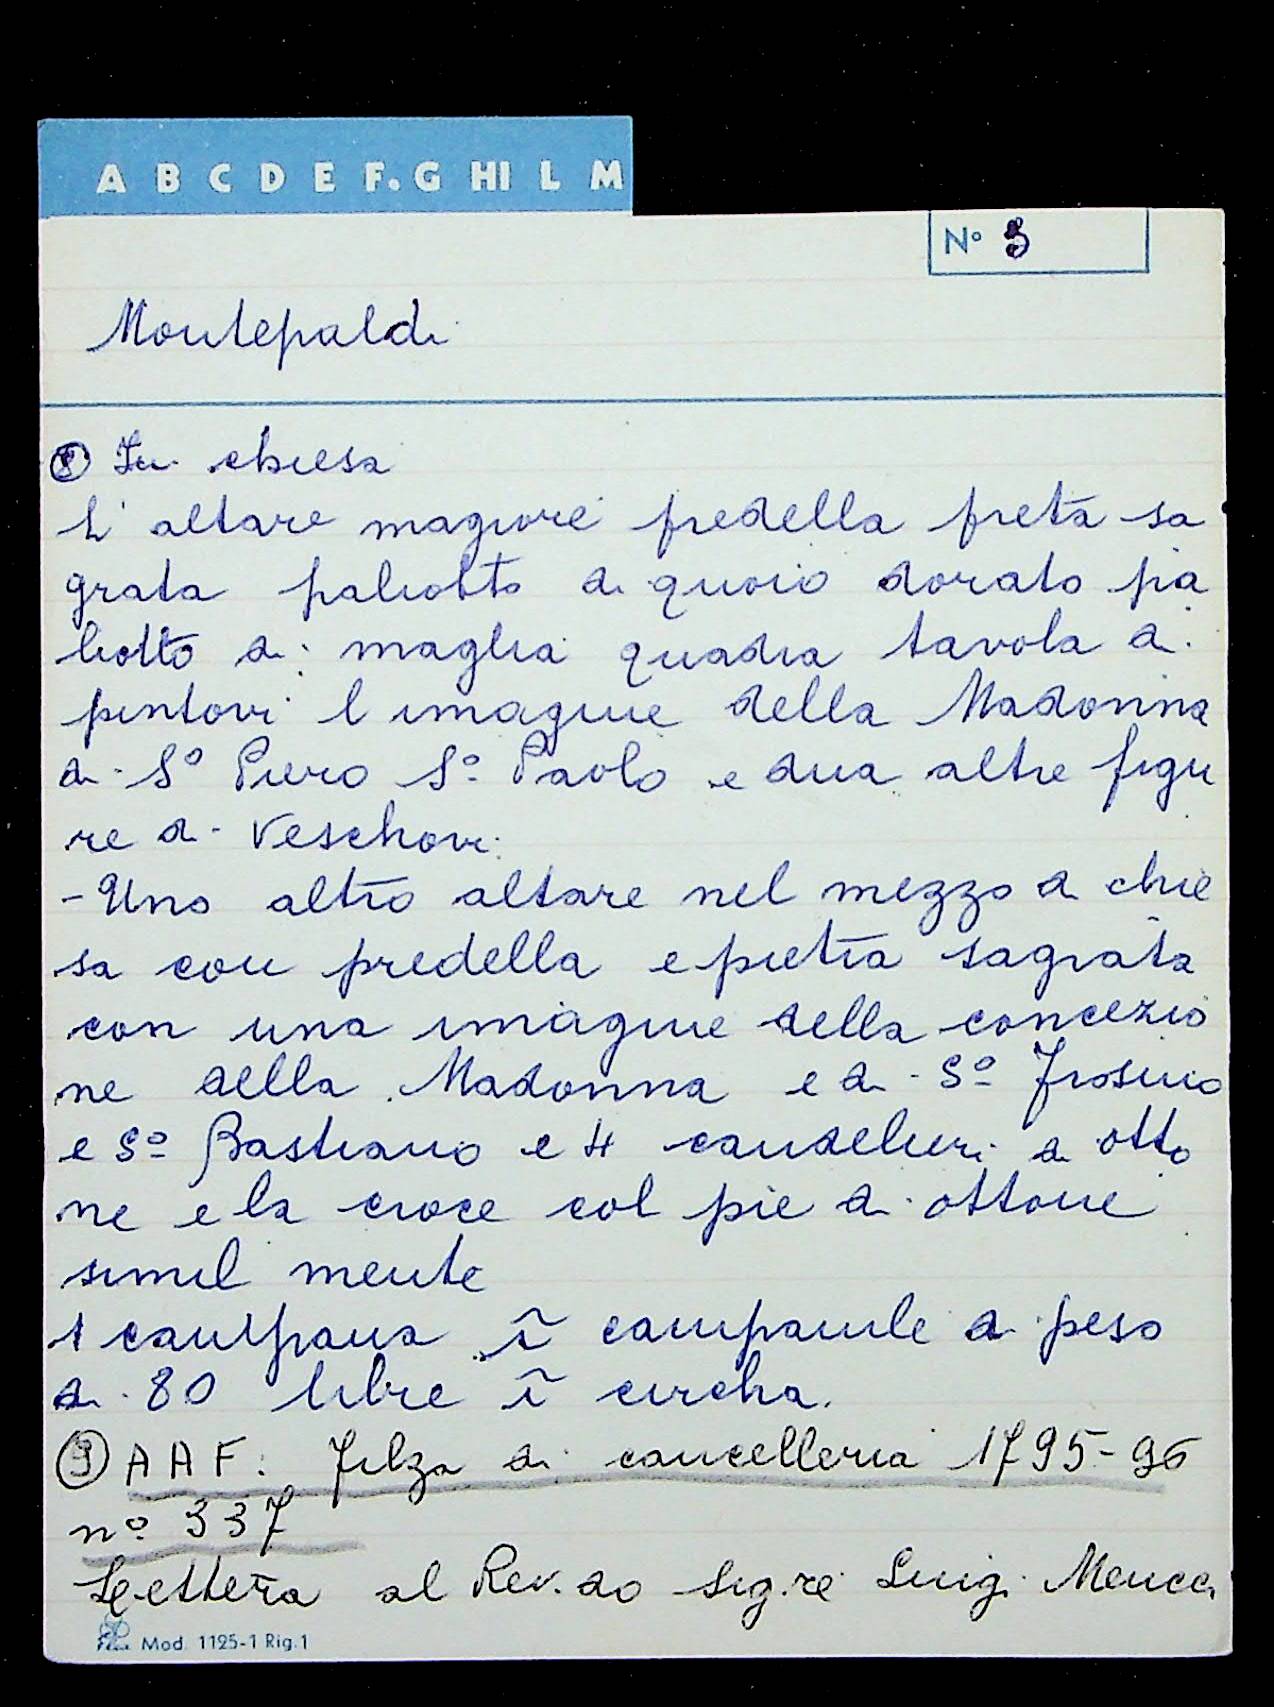 A B C D E F. G HI L M
Nº 3
Montepaldi
⑧ In chiesa
L'altare magiore predella preta sa
grata paliotto di quoio dorato pa
liotto di maglia quadra tavola di
pintovi l imagine della Madonna
di Sº Piero Sº Paolo e dua altre figu
re di Veschovi
- Uno altro altare nel mezzo di chie
sa con predella e pietra sagrata
con una imagine della concezio
ne della Madonna e di Sº Frosino
e Sº Bastiano e 4 candelieri di otto
ne e la croce col pie di ottone
simil mente
1 campana ĩ campanile di peso
di 80 libre ĩ circha.
⑨ A A F. Filza di cancelleria 1795-96
nº 337
Lettera al Rev.do Sig.re Luigi Meucci
Mod. 1125-1 Rig.1